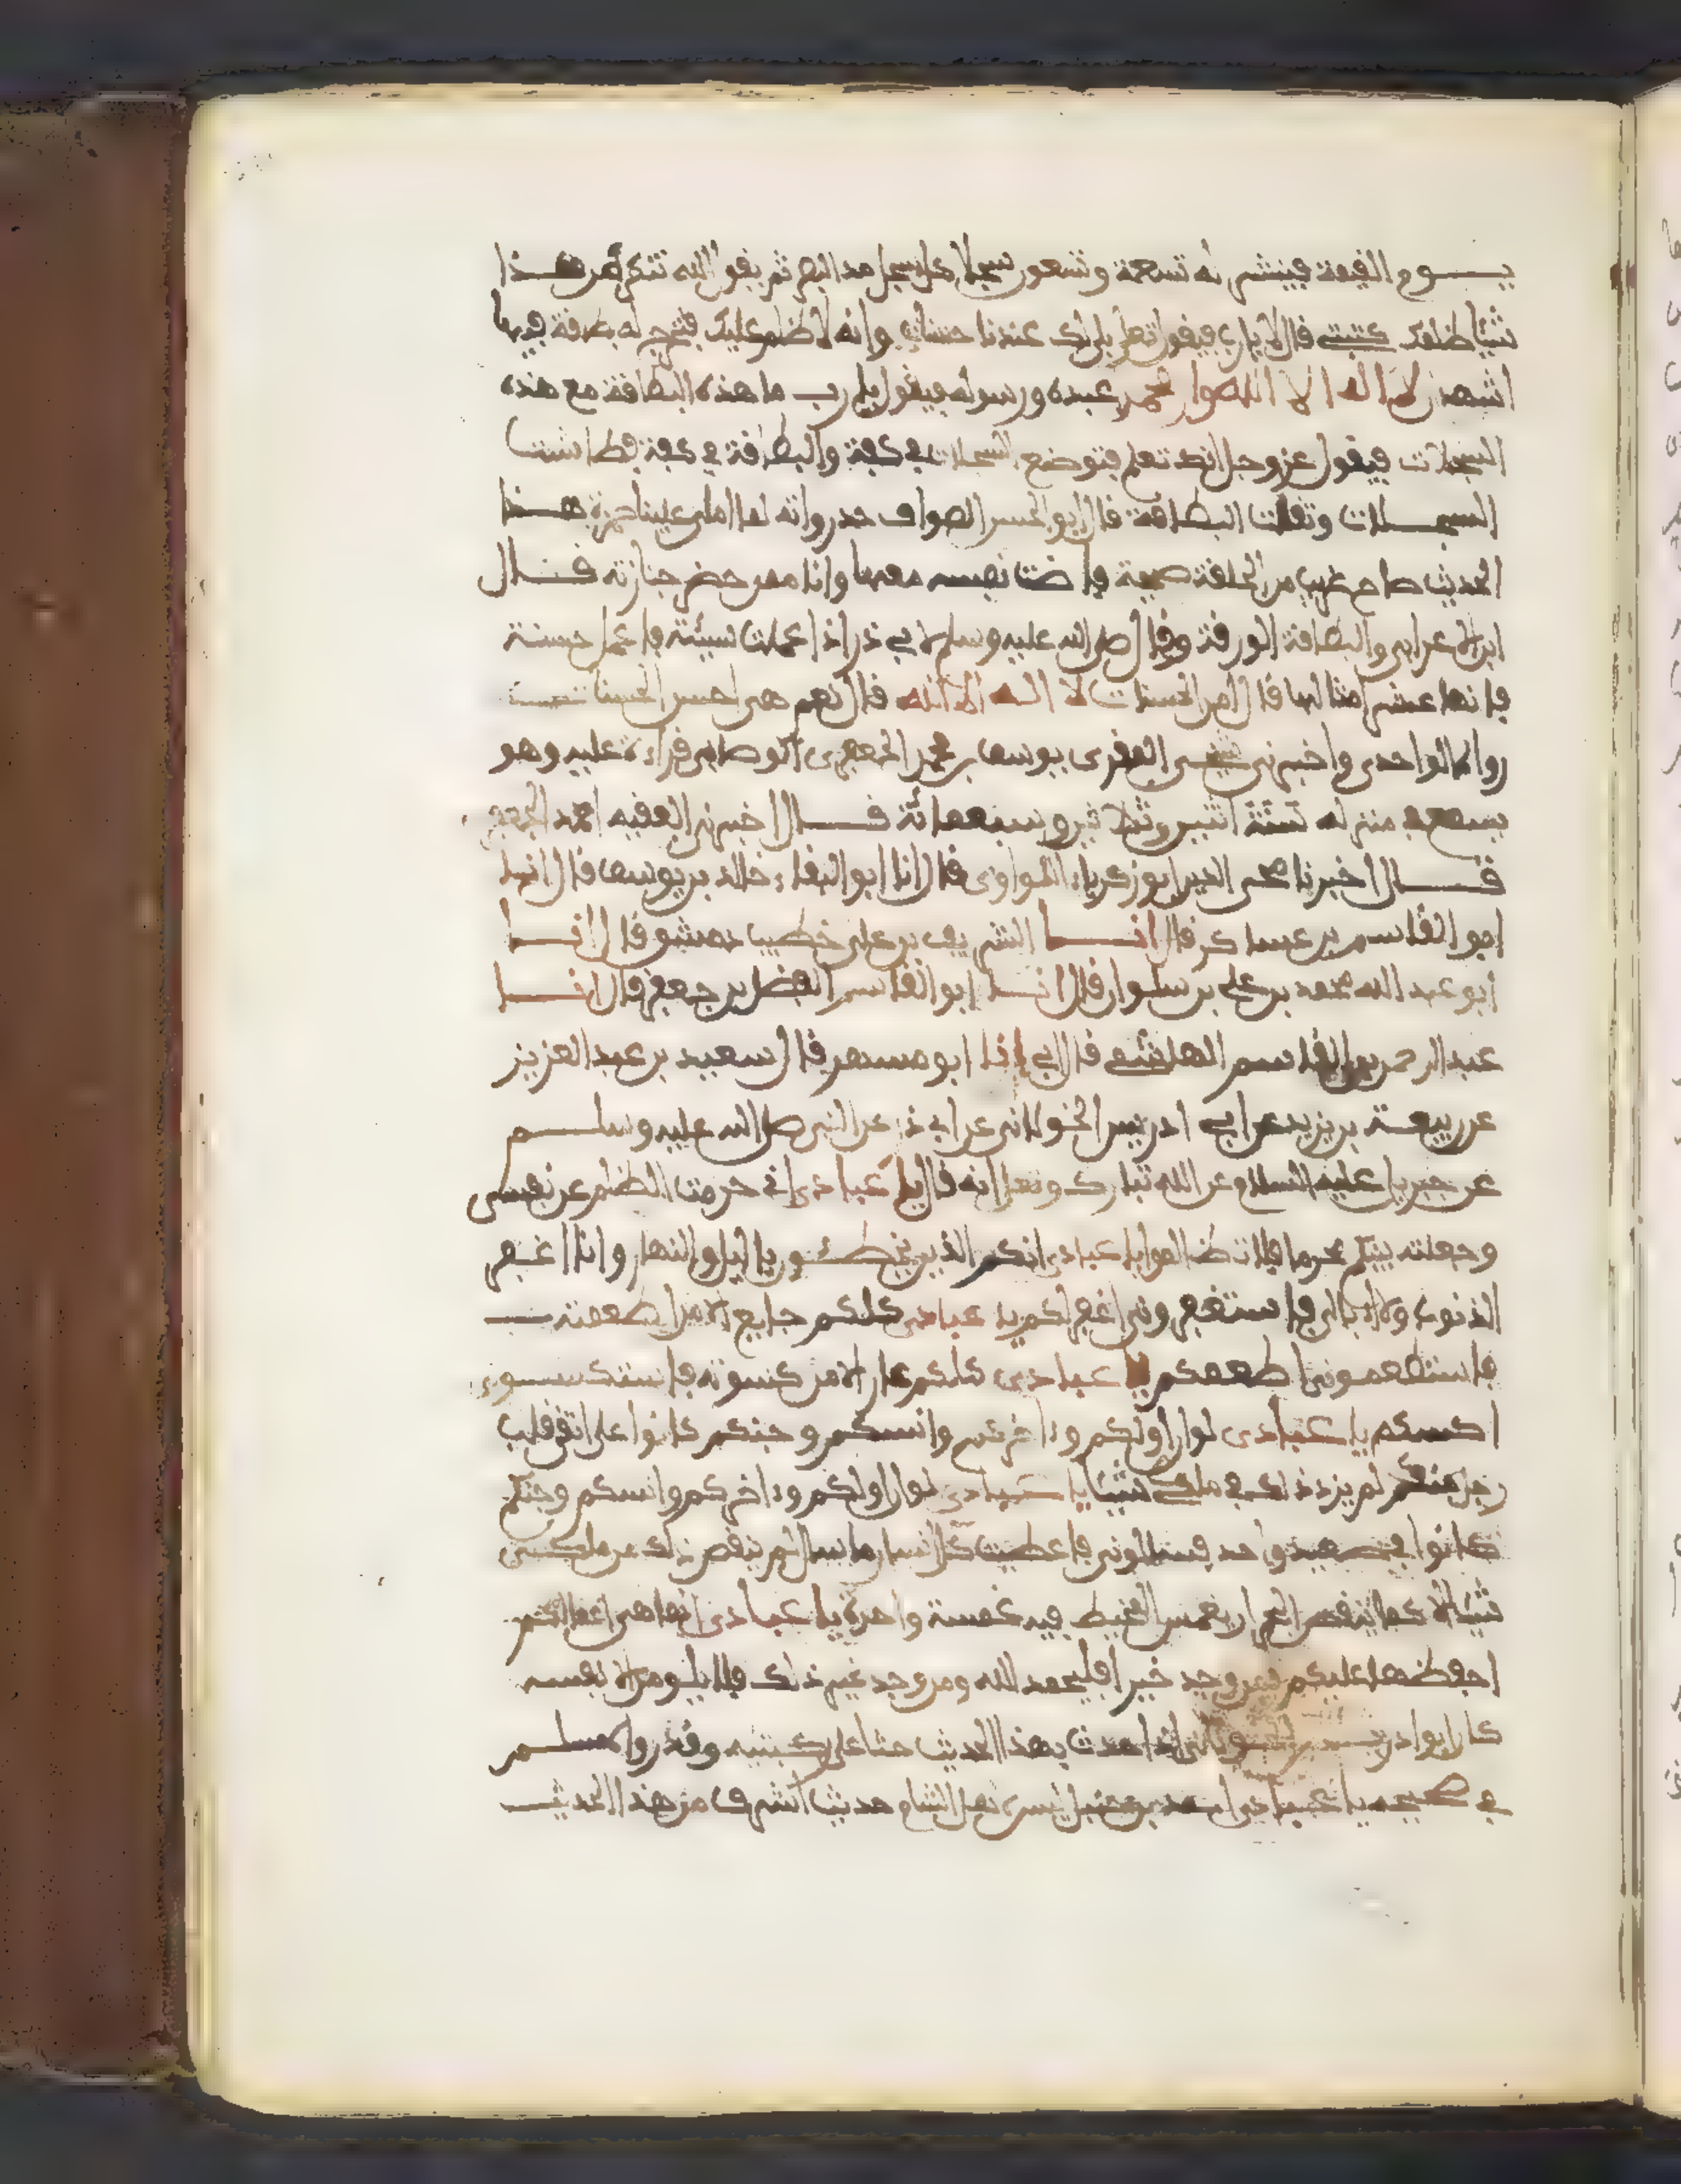 يوم القيمة فينشر له تسعة وتسعون سجلا كل سجل مد البصر ثم يقول الله تنكر من هذا
شيئا كتبتي قال لا يا رب فيقول بلى لك عندنا حسنات وانه لا ظلم عليك فتخرج له بطاقة فيها
اشهد ان لا اله الا الله وان محمدا عبده ورسوله فيقول يا رب ما هذه البطاقة مع هذه
السجلات فيقول عز وجل انك تعلم فتوضع السجلات في كفة والبطاقة في كفة فطاشت
السجلات وثقلت البطاقة قال ابو الحسن الصواف حد رواته لما املى علينا حمزة هذا
الحديث صاح غريب من الحلقة صيحة فاضت نفسه معها وانا ممن حضر جنازته قال
ابن الاعرابي والبطاقة الورقة وقال صلى الله عليه وسلم لابي ذر اذا عملت سيئة فاعمل حسنة
فانها عشر امثالها قال امن الحسنات لا اله الا الله قال نعم هي احسن الحسنات
رواه الواحدي واخبرني يوسف بن محمد الجعفري قراءة عليه وهو
يسمع في منزله سنة اثنين وثلاثين وسبعمائة قال اخبرني الفقيه احمد
قال اخبرنا محي الدين ابو زكرياء النواوي قال انا ابو البقاء خالد بن يوسف قال انا
ابو القاسم بن عساكر قال انا الشريف بن علي خطيب دمشق قال انا
ابو عبد الله محمد بن علي بن سلوان قال انا ابو القاسم الفضل بن جعفر قال انا
عبد الرحمن بن القاسم الهاشمي قال انا ابو مسهر قال سعيد بن عبد العزيز
عن ربيعة بن يزيد عن ابي ادريس الخولاني عن ابي ذر عن النبي صلى الله عليه وسلم
عن جبريل عليه السلام عن الله تبارك وتعلى انه قال يا عبادي اني حرمت الظلم على نفسي
وجعلته بينكم محرما فلا تظالموا يا عبادي انكم الذين تخطئون بالليل والنهار وانا اغفر
الذنوب ولا ابالي فاستغفروني اغفر لكم يا عبادي كلكم جايع الا من اطعمته
فاستطعموني اطعمكم يا عبادي كلكم عار الا من كسوته فاستكسوني
اكسكم يا عبادي لو ان اولكم وءاخركم وانسكم وجنكم كانوا على اتقى قلب
رجل منكم لم يزد ذلك في ملكي شيئا يا عبادي لو ان اولكم وءاخركم وانسكم وجنكم
كانوا في صعيد واحد فسالوني فاعطيت كل انسان ما سال لم ينقص ذلك من ملكي
شيئا الا كما ينقص البحر ان يغمس المخيط فيه غمسة واحدة يا عبادي انما هي اعمالكم
احفظها عليكم فمن وجد خيرا فليحمد الله ومن وجد غير ذلك فلا يلومن الا نفسه
كان ابو ادريس الخولاني اذا حدث بهذا الحديث جثا على ركبتيه وقد رواه مسلم
في صحيحه يا عبادي احمد بن حنبل ليس لاهل الشام حديث اشرف من هذا الحديث